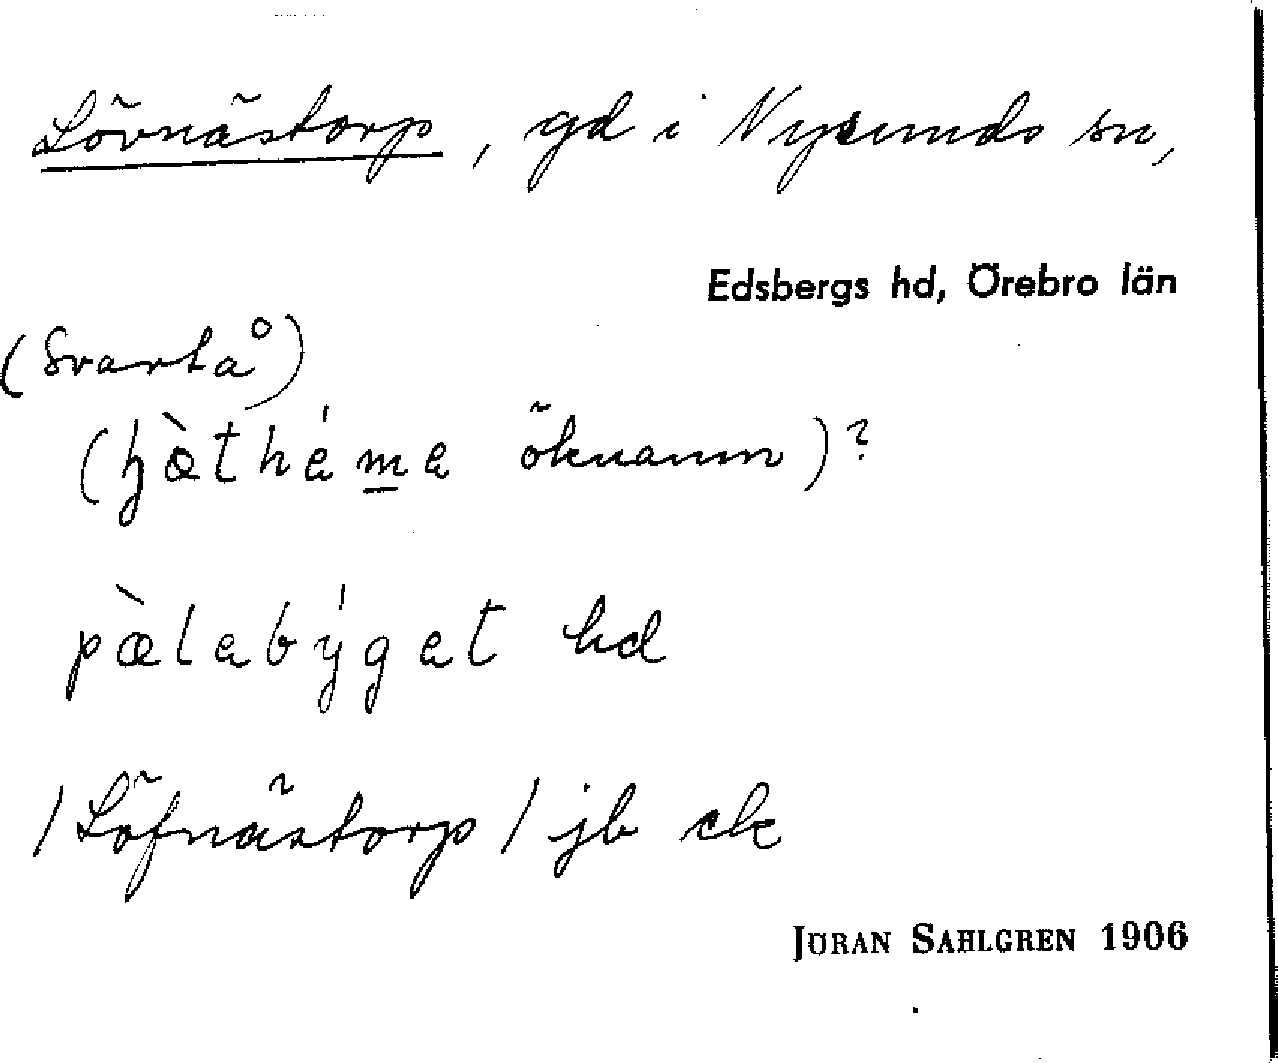 Lövnästorp, gd i Nysunds sn,
Edsbergs hd, Örebro län
(Svartå)
(hæ̀théme öknamn)?
pæ̀lebýget hd
/Löfnästorp/ jb ek
JÖRAN SAHLGREN 1906